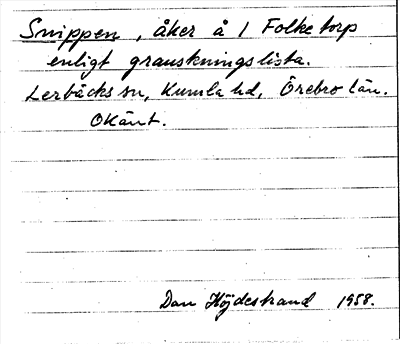 Snippen, åker å 1 Folketorp
enligt granskningslista.
Lerbäcks sn, Kumla hd, Örebro län.
Okänt.
Dan Höjdestrand 1958.